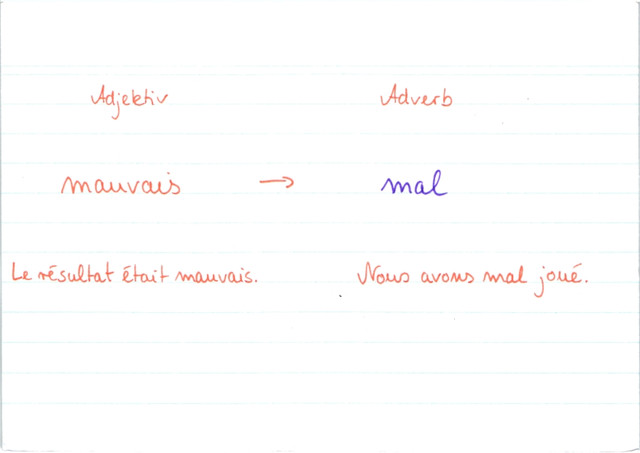 Adjektiv Adverb
mauvais → mal
Le résultat était mauvais. Nous avons mal joué.